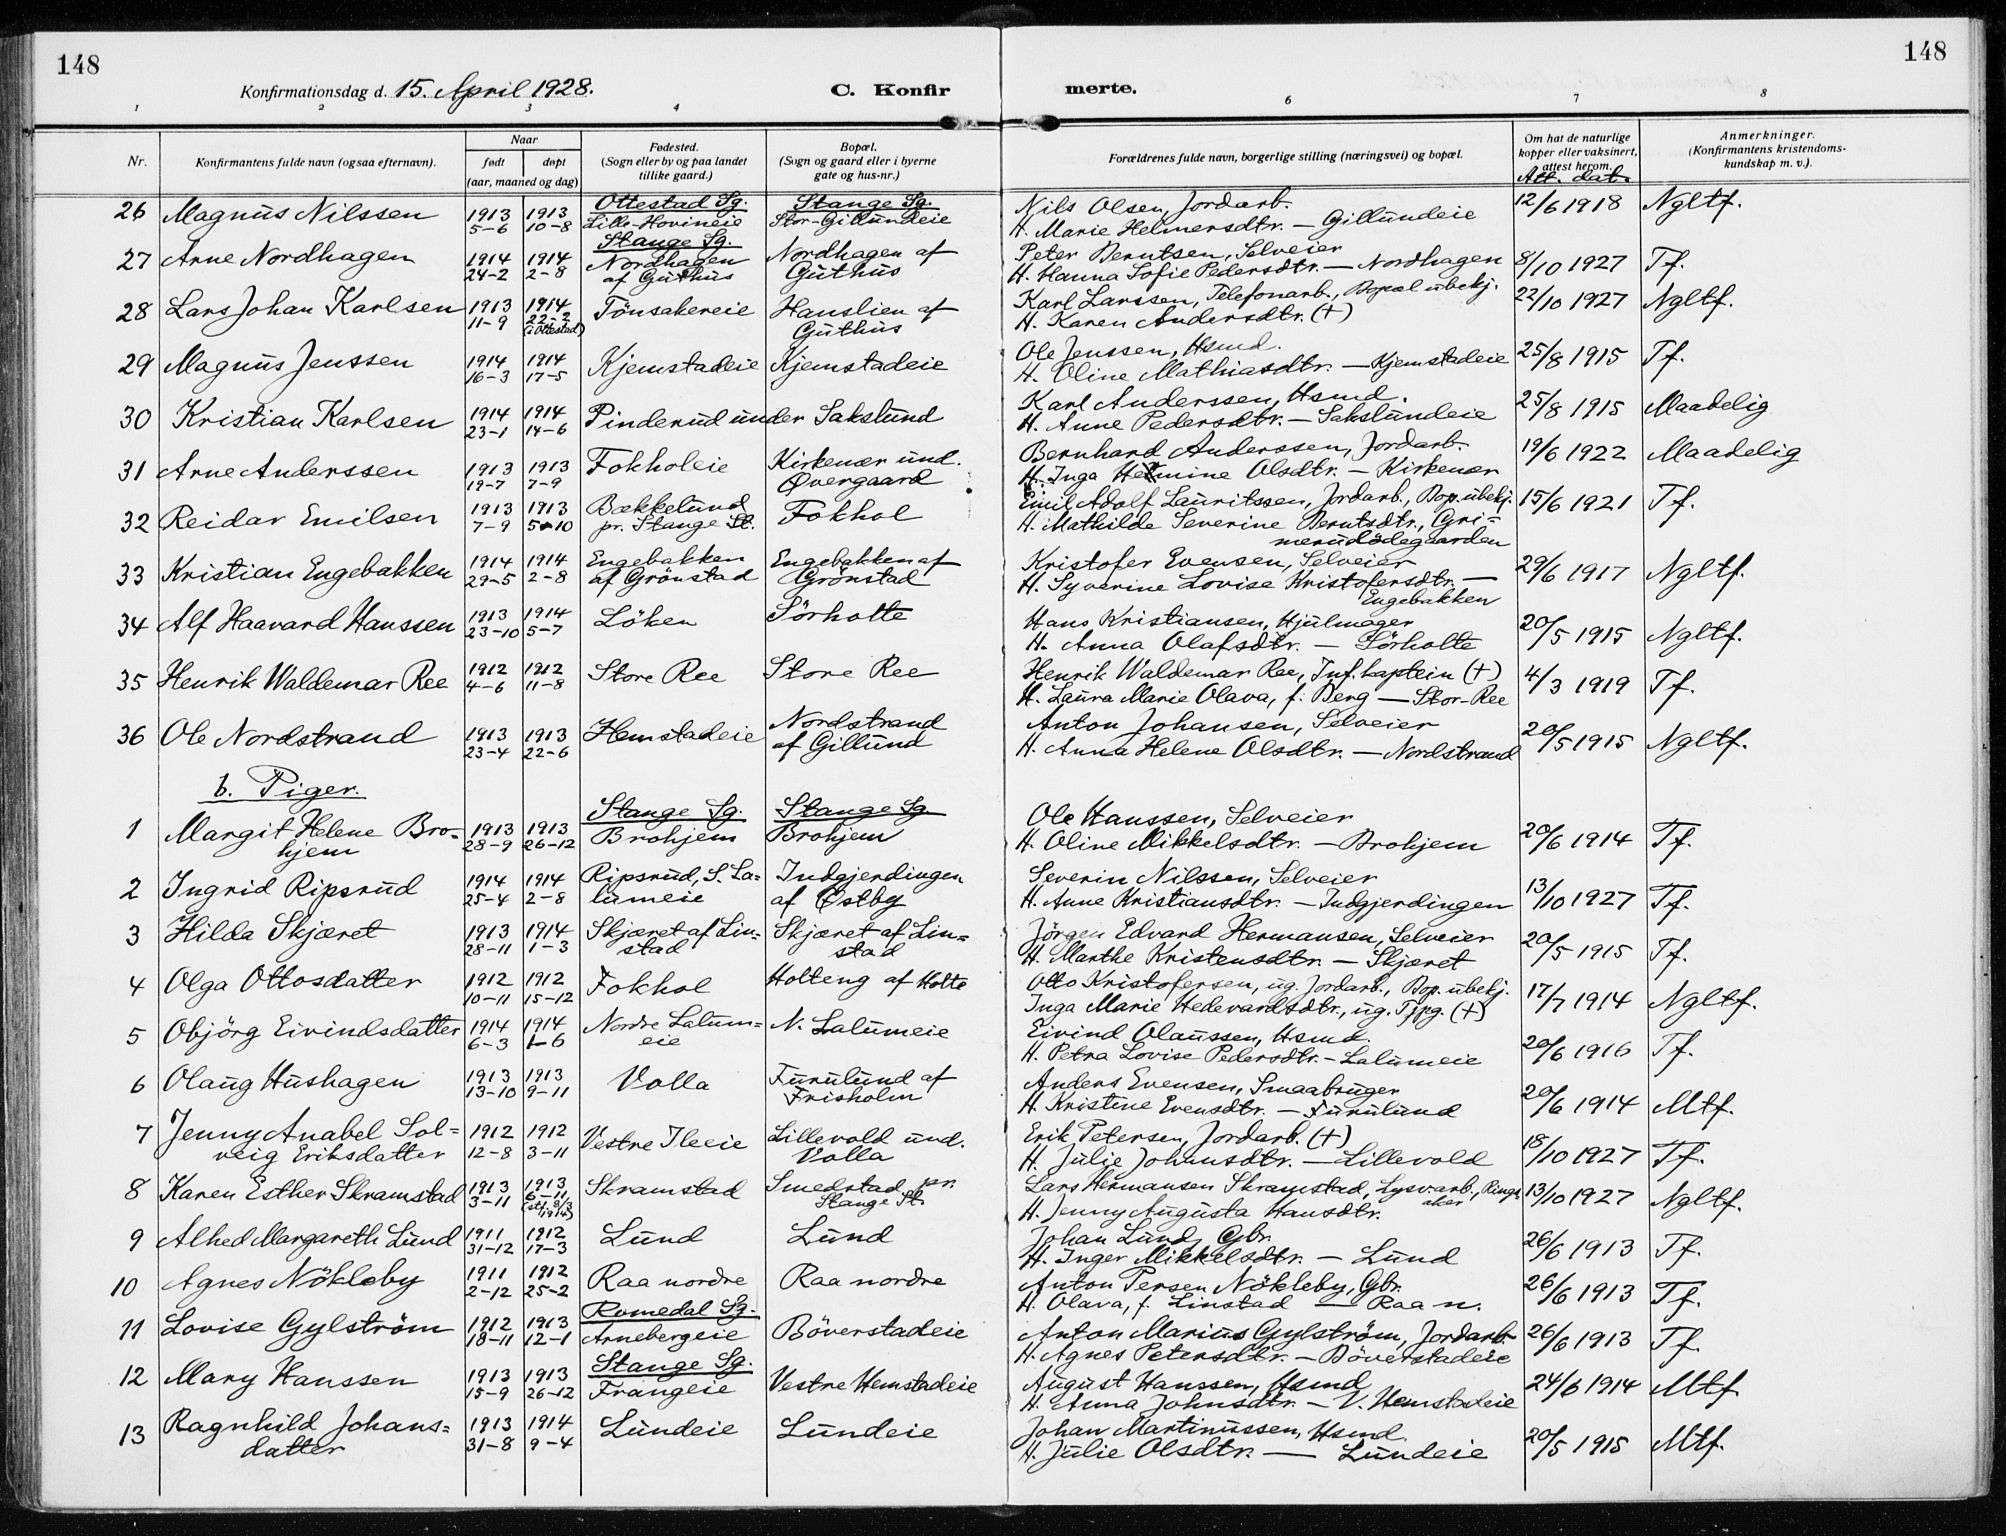 148
148
Konfirmationsdag d. 15. April 1928.
C. Konfir
merte.
1 2 3 4 6 7 8
Nr.
Konfirmantens fulde navn (ogsaa efternavn).
Naar
født døpt
(aar, maaned og dag)
Fødested.
(Sogn eller by og paa landet
tillike gaard.)
Bopæl.
(Sogn og gaard eller i byerne
gate og hus-nr.)
Forældrenes fulde navn, borgerlige stilling (næringsvei) og bopæl.
Om hat de naturlige
kopper eller vaksinert,
attest herom.
Att. dat.
Anmerkninger.
(Konfirmantens kristendoms-
kundskap m. v.).
Ottestad Sg. Stange Sg.
26 Magnus Nilssen 1913 1913 Lille-Hovineie Stor-Gillundeie Nils Olsen, Jordarb. 12/6 1918 Ngltf.
5-6 10-8 H. Marie Helmersdtr. — Gillundeie
Stange Sg.
27 Arne Nordhagen 1914 1914 Nordhagen Nordhagen af Peter Berntsen, Selveier 8/10 1927 Tf.
24-2 2-8 af Guthus Guthus H. Hanna Sofie Pedersdtr. — Nordhagen
28 Lars Johan Karlsen 1913 1914 Tönsakereie Hanslien af Karl Larssen, Telefonarb., Bopæl ubekj. 22/10 1927 Ngltf.
11-9 22-2 (i Ottestad) Guthus H. Karen Andersdtr. (+)
29 Magnus Jenssen 1914 1914 Kjemstadeie Kjemstadeie Ole Jenssen, Hsmd. 25/8 1915 Tf.
16-3 17-5 H. Oline Mathiasdtr. — Kjemstadeie
30 Kristian Karlsen 1914 1914 Pinderud under Sakslund Karl Anderssen, Hsmd. 25/8 1915 Maadelig
23-1 14-6 H. Anne Pedersdtr. — Sakslundeie
31 Arne Anderssen 1913 1913 Fokholeie Kirkenær und. Bernhard Anderssen, Jordarb. 19/6 1922 Maadelig
19-7 7-9 Øvergaard H. Inga Hermine Olsdtr. — Kirkenær
32 Reidar Emilsen 1913 1913 Bækkelund Fokhol Emil Adolf Lauritssen, Jordarb., Bop. ubekj. 15/6 1921 Tf.
7-9 5-10 pr. Stange St. H. Mathilde Severine Berntsdtr., Gri-
merudødegaarden
33 Kristian Engebakken 1914 1914 Engebakken Engebakken af Kristofer Evensen, Selveier 29/6 1917 Ngltf.
29-5 2-8 af Grönstad Grönstad H. Syverine Lovise Kristofersdtr. —
Engebakken
34 Alf Haavard Hanssen 1913 1914 Löken Sörholte Hans Kristiansen, Hjulmager 20/5 1915 Ngltf.
23-10 5-7 H. Anna Olafsdtr. — Sörholte
35 Henrik Waldemar Ree 1912 1912 Store Ree Store Ree Henrik Waldemar Ree, Inf. kaptein (+) 4/3 1919 Tf.
4-6 11-8 H. Laura Marie Olava, f. Berg — Stor-Ree
36 Ole Nordstrand 1913 1913 Hemstadeie Nordstrand Anton Johansen, Selveier 20/5 1915 Ngltf.
23-4 22-6 af Gillund H. Anna Helene Olsdtr. — Nordstrand
b. Piger.
Stange Sg. Stange Sg.
1 Margit Helene Bro- 1913 1913 Brohjem Brohjem Ole Hanssen, Selveier 20/6 1914 Tf.
hjem 28-9 26-12 H. Oline Mikkelsdtr. — Brohjem
2 Ingrid Ripsrud 1914 1914 Ripsrud, S. La- Indgjerdingen Severin Nilssen, Selveier 13/10 1927 Tf.
25-4 2-8 lumeie af Østby H. Anne Kristiansdtr. — Indgjerdingen
3 Hilda Skjæret 1913 1914 Skjæret af Lin- Skjæret af Lin- Jörgen Edvard Hermansen, Selveier 20/5 1915 Tf.
28-11 1-3 stad stad H. Marthe Kristensdtr. — Skjæret
4 Olga Ottosdatter 1912 1912 Fokhol Holteng af Holte Otto Kristofersen, ug. Jordarb., Bop. ubekj. 17/7 1914 Ngltf.
10-11 15-12 Inga Marie Hedevardsdtr., ug. Tjpg. (+)
5 Objörg Eivindsdatter 1914 1914 Nordre Lalum- N. Lalumeie Eivind Olaussen, Hsmd. 20/6 1916 Tf.
6-3 1-6 eie H. Petra Lovise Pedersdtr. - Lalumeie
6 Olaug Hushagen 1913 1913 Volla Furulund af Anders Evensen, Smaabruger 20/6 1914 Mtf.
13-10 9-11 Frisholm H. Kristine Evensdtr. — Furulund
7 Jenny Anabel Sol- 1912 1912 Vestre Ileeie Lillevold und. Erik Petersen, Jordarb. (+) 18/10 1927 Tf.
veig Eriksdatter 12-8 3-11 Volla H. Julie Johansdtr. — Lillevold
8 Karen Esther Skramstad 1913 1913 Skramstad Smedstad pr. Lars Hermansen Skramstad, Lysv.arb., Rings- 13/10 1927 Ngltf.
3-11 6-11 (stf. 8/3 1914) Stange St. H. Jenny Augusta Hansdtr. aker
9 Alhed Margareth Lund 1911 1912 Lund Lund Johan Lund, Gbr. 26/6 1913 Tf.
31-12 17-3 H. Inger Mikkelsdtr. — Lund
10 Agnes Nökleby 1911 1912 Raa nordre Raa nordre Anton Persen Nökleby, Gbr. 26/6 1913 Tf.
2-12 25-2 H. Olava, f. Linstad — Raa n.
Romedal Sg.
11 Lovise Gylström 1912 1913 Arnebergeie Böverstadeie Anton Marius Gylström, Jordarb. 26/6 1913 Tf.
18-11 12-1 H. Agnes Petersdtr. — Böverstadeie
Stange Sg.
12 Mary Hanssen 1913 1913 Frangeie Vestre Hemstadeie August Hanssen, Hsmd 24/6 1914 Mtf
15-9 26-12 H. Anna Johnsdtr. — V. Hemstadeie
13 Ragnhild Johans- 1913 1914 Lundeie Lundeie Johan Martinussen, Hsmd. 20/5 1915 Mtf.
datter 31-8 9-4 H. Julie Olsdtr. — Lundeie